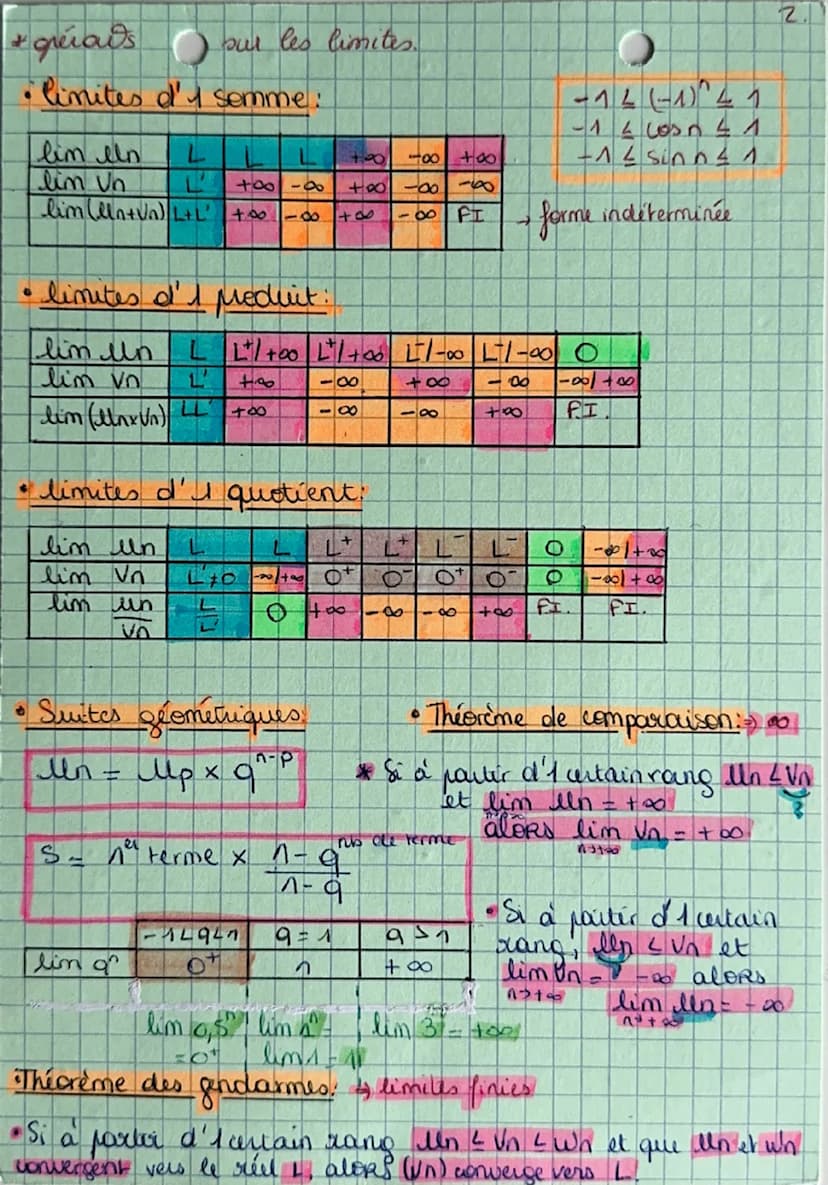 2.
* opérations sur les limites.
• limites d'1 somme:
-1 ≤ (-1)ⁿ ≤ 1
-1 ≤ cos n ≤ 1
-1 ≤ sin n ≤ 1
lim Un L L L +∞ -∞ +∞
lim Vn L' +∞ -∞ +∞ -∞ -∞
lim(Un+Vn) L+L' +∞ -∞ +∞ -∞ FI → forme indéterminée
• limites d'1 produit:
lim Un L L⁺/+∞ L⁺/+∞ L⁻/-∞ L⁻/-∞ 0
lim Vn L' +∞ -∞ +∞ -∞ -∞/+∞
lim(Un×Vn) LL' +∞ -∞ -∞ +∞ F.I.
• limites d'1 quotient:
lim Un L L L⁺ L⁺ L⁻ L⁻ 0 -∞/+∞
lim Vn L'≠0 -∞/+∞ 0⁺ 0⁻ 0⁺ 0⁻ 0 -∞/+∞
lim Un/Vn L/L' 0 +∞ -∞ -∞ +∞ FI. FI.
• Suites géométriques:
Un = Up × qⁿ⁻ᵖ
S = 1er terme × 1-q^nb de terme
1-q
-1<q<1 q=1 q>1
lim qⁿ 0⁺ 1 +∞
lim 0,5ⁿ lim 1ⁿ= lim 3ⁿ = +∞
=0⁺ lim 1 = 1
• Théorème de comparaison: ⇒ ∞
* Si à partir d'1 certain rang Un ≤ Vn
et lim Un = +∞
n→+∞
alors lim Vn = +∞
n→+∞
• Si à partir d'1 certain
rang, Un ≤ Vn et
lim Vn = -∞ alors
n→+∞
lim Un = -∞
n→+∞
• Théorème des gendarmes: ↳ limites finies
• Si à partir d'1 certain rang Un ≤ Vn ≤ Wn et que Un et Wn
convergent vers le réel L, alors (Vn) converge vers L.